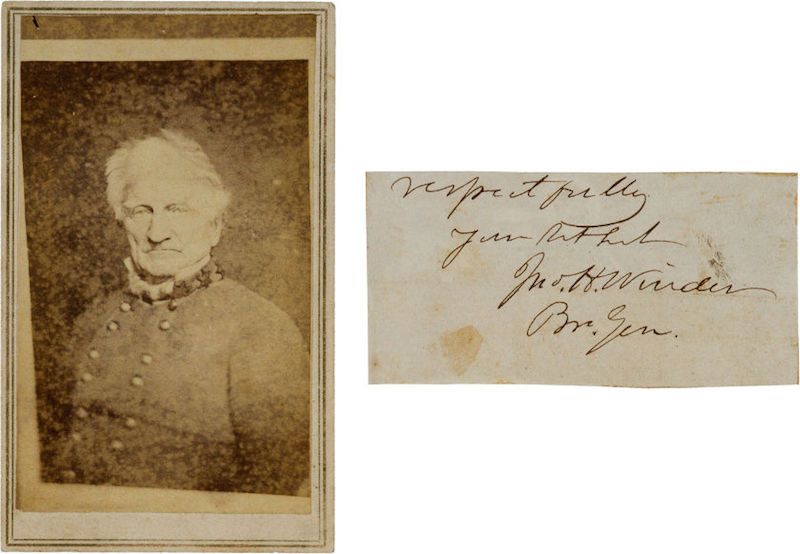 respectfully
Your Obt Svt
Jno. H. Winder
Br. Gen.